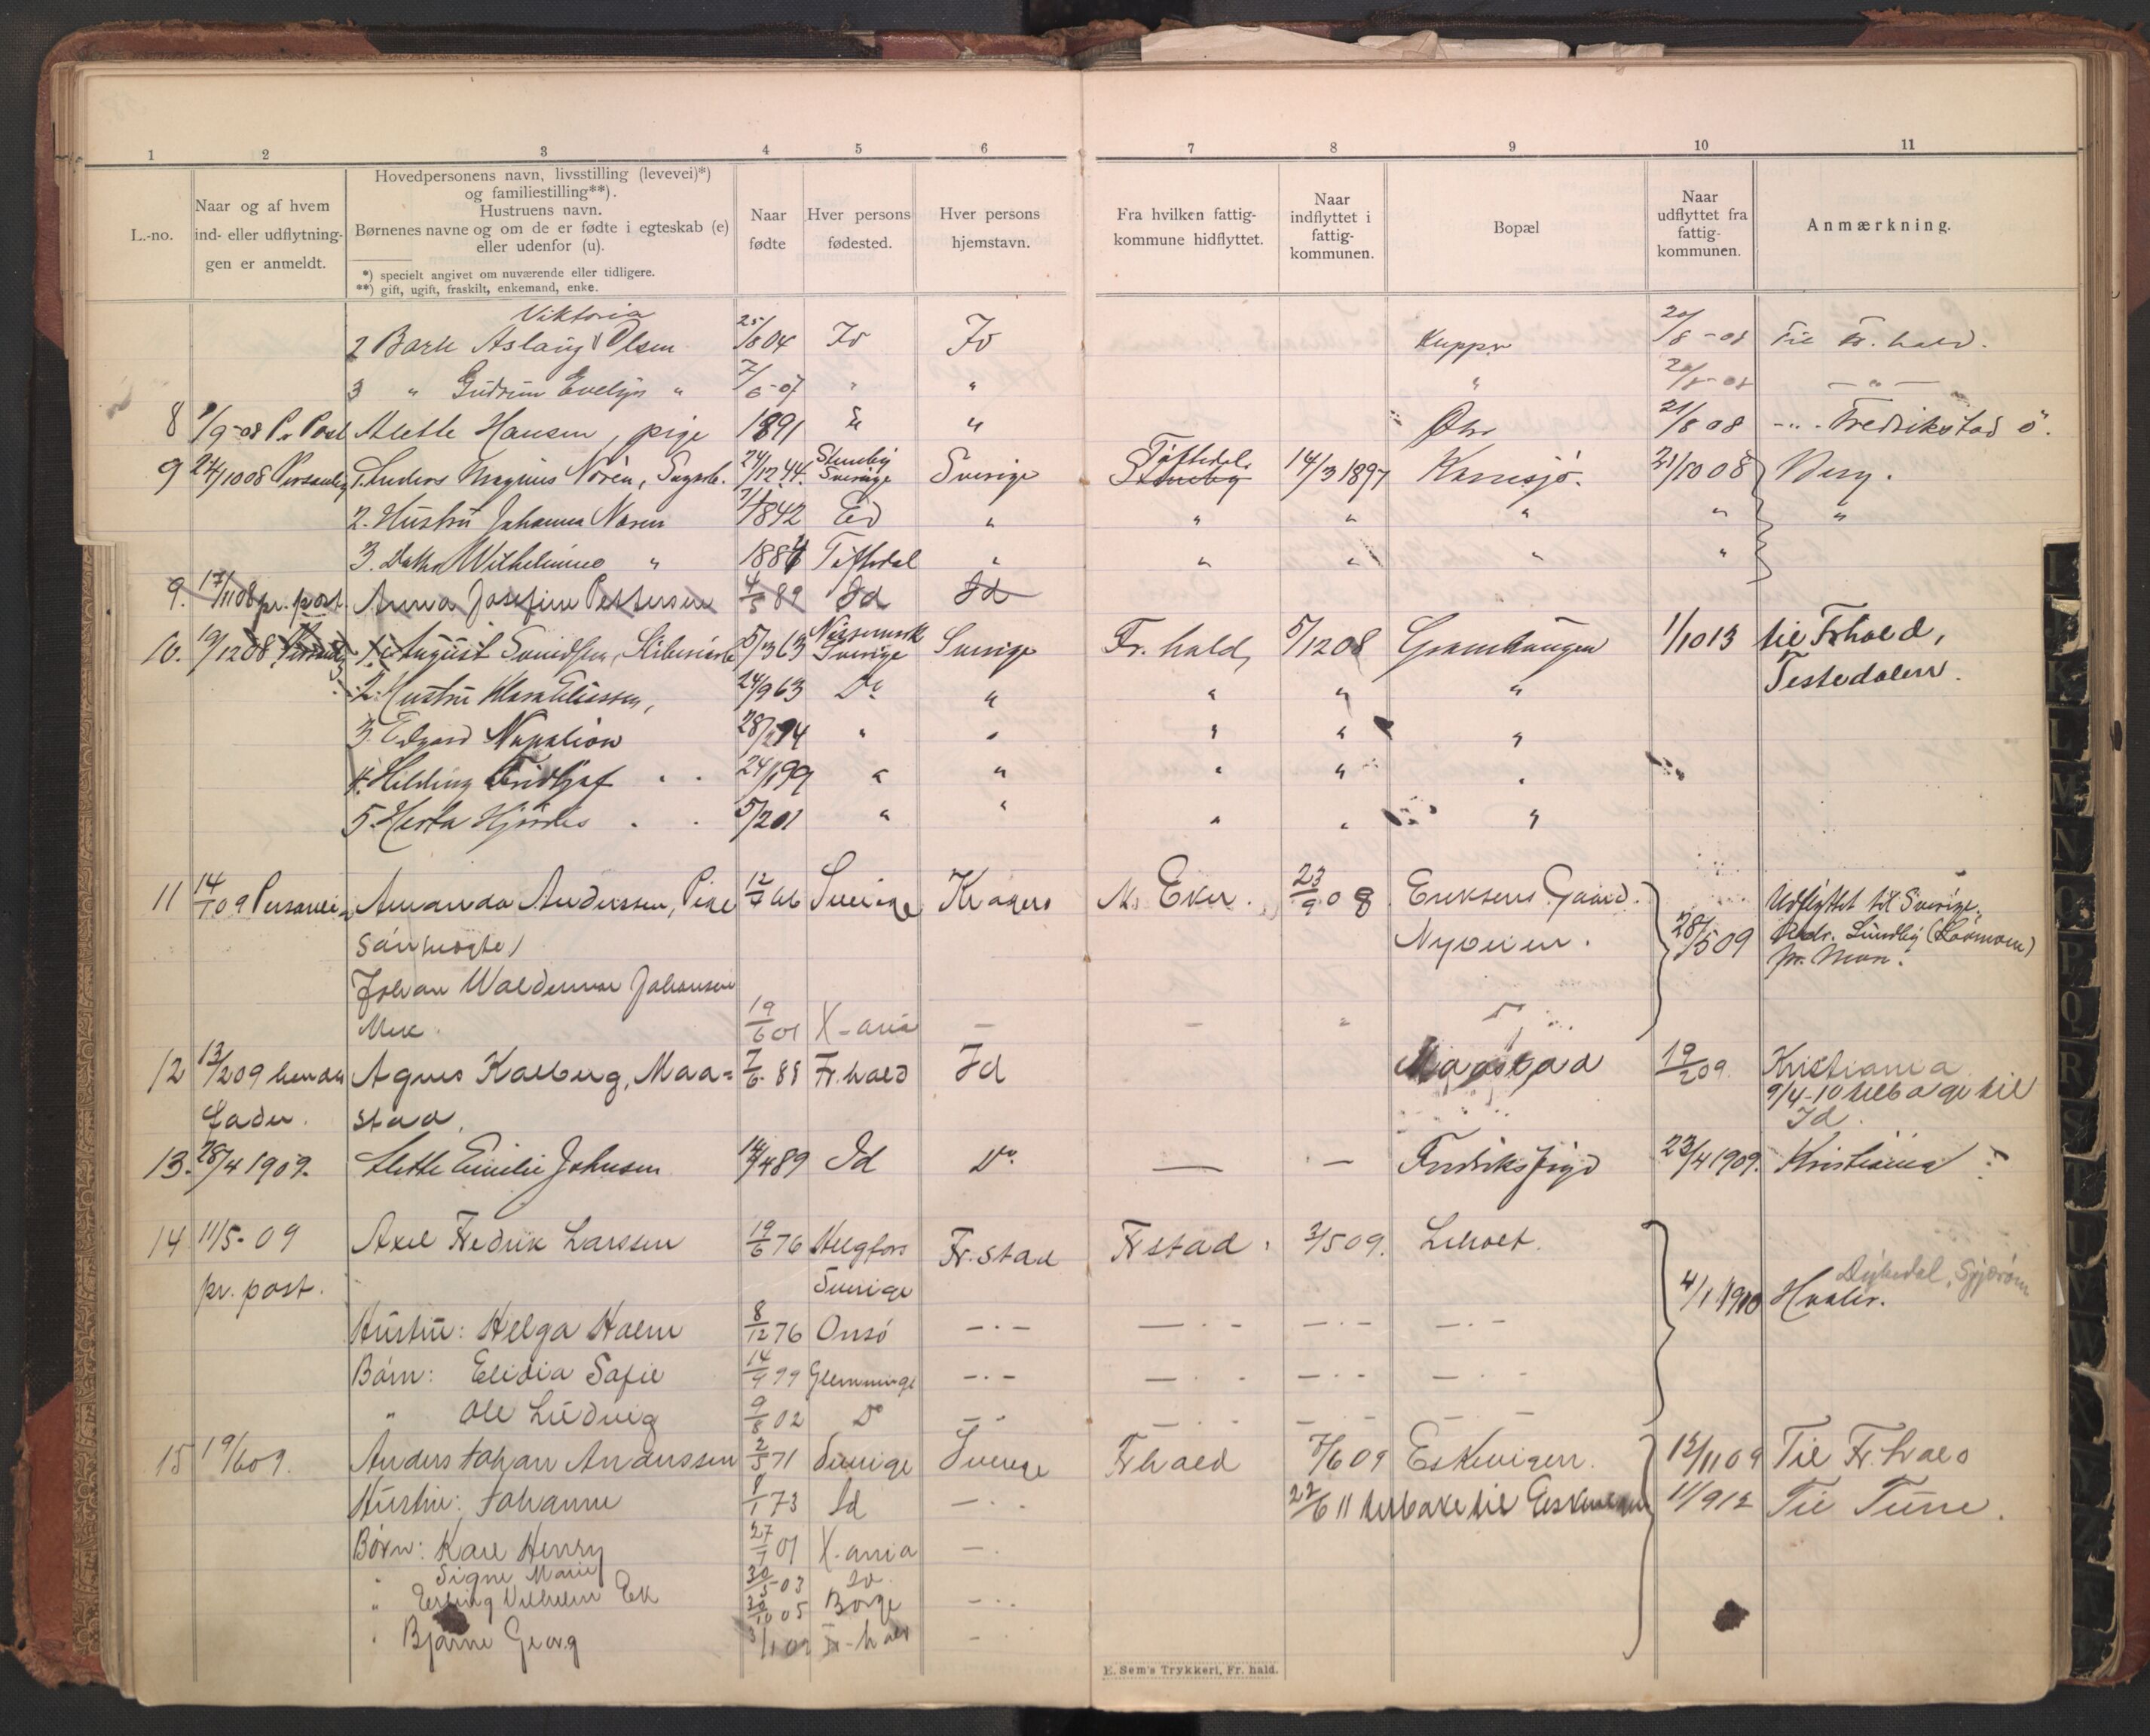 1 2 3 4 5 6 7 8 9 10 11
L.-no.
Naar og af hvem
ind- eller udflytnin-
gen er anmeldt.
Hovedpersonens navn, livsstilling (levevei)*)
og familiestilling**).
Hustruens navn.
Børnenes navne og om de er fødte i egteskab (e)
eller udenfor (u).
*) specielt angivet om nuværende eller tidligere.
**) gift, ugift, fraskilt, enkemand, enke.
Naar
fødte
Hver persons
fødested.
Hver persons
hjemstavn.
Fra hvilken fattig-
kommune hidflyttet.
Naar
indflyttet i
fattig-
kommunen.
Bopæl
Naar
udflyttet fra
fattig-
kommunen.
Anmærkning.
Viktoria
2 Barn Aslaug Olsen 25/8 04 Id Id 20/8-08 Til Fr. hald.
3 " Gudrun Evelyn " 7/6-07 " " " 20/8-08 — " —
8 9/9-08 Pr Post Alette Hansen, pige 1891 " " 21/8 08 - " - Fredrikstad ö.
9 24/10 08 Personlig 1. Anders Magnus Norén, 24/12 44. Sverige Sverige Töftedal 14/3 1897 Kornsjø. 21/10 08 Berg.
2. Hustru Johanna Noren 1842 Ed " " " " " "
3. Wilhelmine " 1884 Töftedal " " " " "
9. 17/11 08 pr. post. Anna Josefine Pettersen 4/5 89 Id Id
10. 10/12 08 1. August Svendsen, 5/3 63 Sverige Sverige Fr. hald, 5/12 08 1/10 13 til Frhald,
Testedalen.
2. Hustru Klara Eliassen, 24/9 63 Do " " " "
3. Edvard Napolion 28/2 94 " " " " "
4. Hilding Fridtjof " " 24/1 99 " " " " "
5. Herta Hjørdis " " 5/2 01 " " " " "
11 14/1 09 Personlig Amanda Anderssen, Pige 12/7 66 Sverige Kragerø N. Eker. 23/9 08 Eriksens Gaard. Udflyttet til Sverige.
Nyveien. 28/5 09 Adr. Lundby
Johan Waldemar Johansen
19/6 01 X-ania — — "
12 13/2 09 hendes Agnes Kalberg, Maa= 7/6 88 Fr. hald Id Maastad 19/2 09. Kristiania
9/4-10 tilbage til
fader. stad. Id.
13. 28/4 1909. Alette Emilie Johnsen 14/4 89 Id Do — — Fredriksfryd 23/4 1909. Kristiania
14 11/5-09 Axel Fredrik Larssen 19/6 76 Fr. stad Fr stad. 3/5 09. Liholt.
pr. post. Sverige 4/1 1910 Hvaler. Dybedal, Spjærøen
Hustru: Helga Holm 8/12 76 Onsö — . — — . — — . — — . —
Børn: Elidia Sofie 14/9 99 Glemminge — . — — . — — . — — . —
" Ole Ludvig 9/8 02 Do — . — — . — — . — — . —
15 19/6 09. Anders Johan Anderssen 2/5 71 Sverige Sverige Fr hald 7/6 09 Eskevigen. 12/11 09 Til Fr. hald
Hustru: Johanne 8/1 73 Id — . . 22/6 11 tilbake til Eskevigen 11/9 12 Til Tune.
Børn: Karl Henry 27/7 01 X-ania — .
" Signe Marie 30/5-03 Do.
" Erling Vilhelm Ek 30/10 05 Borge — . .
" Bjarne Georg Fr-hald — .
E. Sem's Trykkeri, Fr. hald.
K L M N O P Q R S T U V W